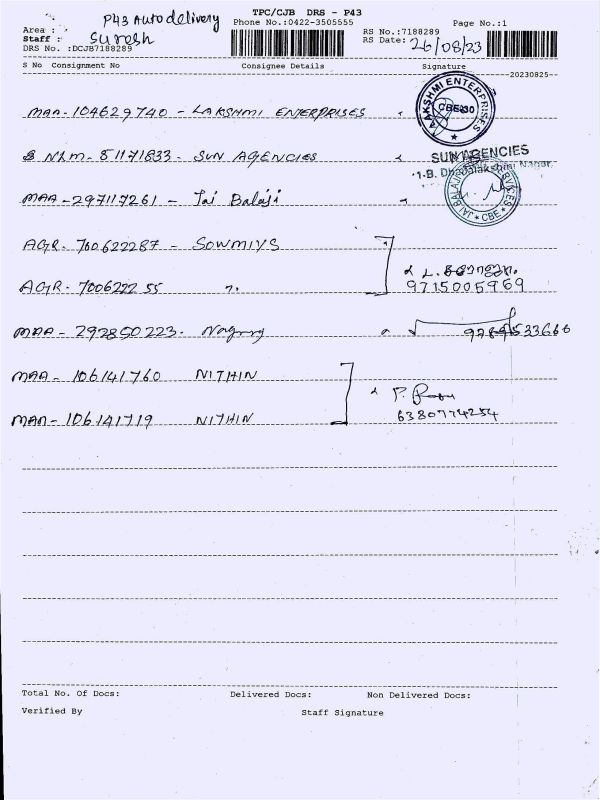 TPC/CJB DRS - P43
P43 Auto delivery
Phone No.:0422-3505555
Page No.:1
Area :
RS No.:7188289
Staff : Suresh
RS Date: 26/08/23
DRS No. :DCJB7188289
S No Consignment No Consignee Details Signature
20230825
MAA- 104629740 - LAKSHMI ENTERPRISES
LAKSHMI ENTERPRISES
NLM- 81171833- SUN AGENCIES
SUN AGENCIES
MAA-297117261 - Jai Balaji
CBE
AGR- 700622287 - SOWMIYS
AGR- 700622255 "
9715005969
MAA - 292850223-
MAA - 106141760 NITHIN
MAA-106141719 NITHIN
6380774254
Total No. Of Docs: Delivered Docs: Non Delivered Docs:
Verified By Staff Signature